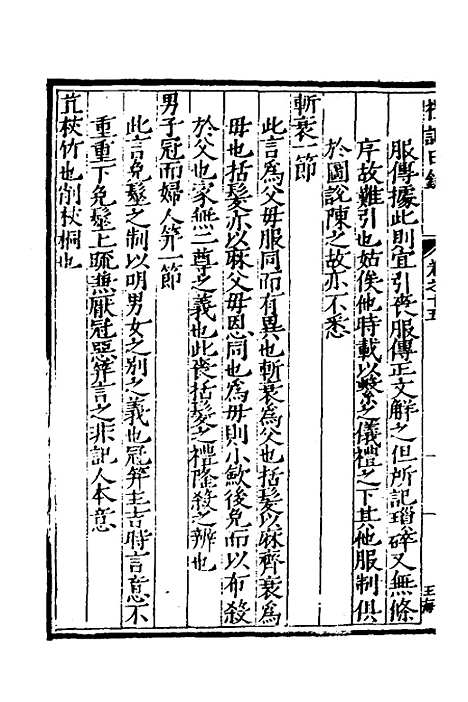 禮記日錄
卷之十五
一
王海
服傳據此則宜引喪服傳正文解之但所記瑣碎又無條
序故難引也姑俟他時載以繫之儀禮之下其他服制俱
於圖說陳之故亦不悉
斬衰一節
此言為父母服同而有異也斬衰為父也括髮以麻齊衰為
母也括髮亦以麻父母恩同也為母則小歛後免而以布殺
於父也家無二尊之義也此喪括髮之禮隆殺之辨也
男子冠而婦人笄一節
此言免髽之制以明男女之別之義也冠笄主吉時言意不
重重下免髽上疏蕪厭冠惡笄言之非記人本意
苴杖竹也削杖桐也